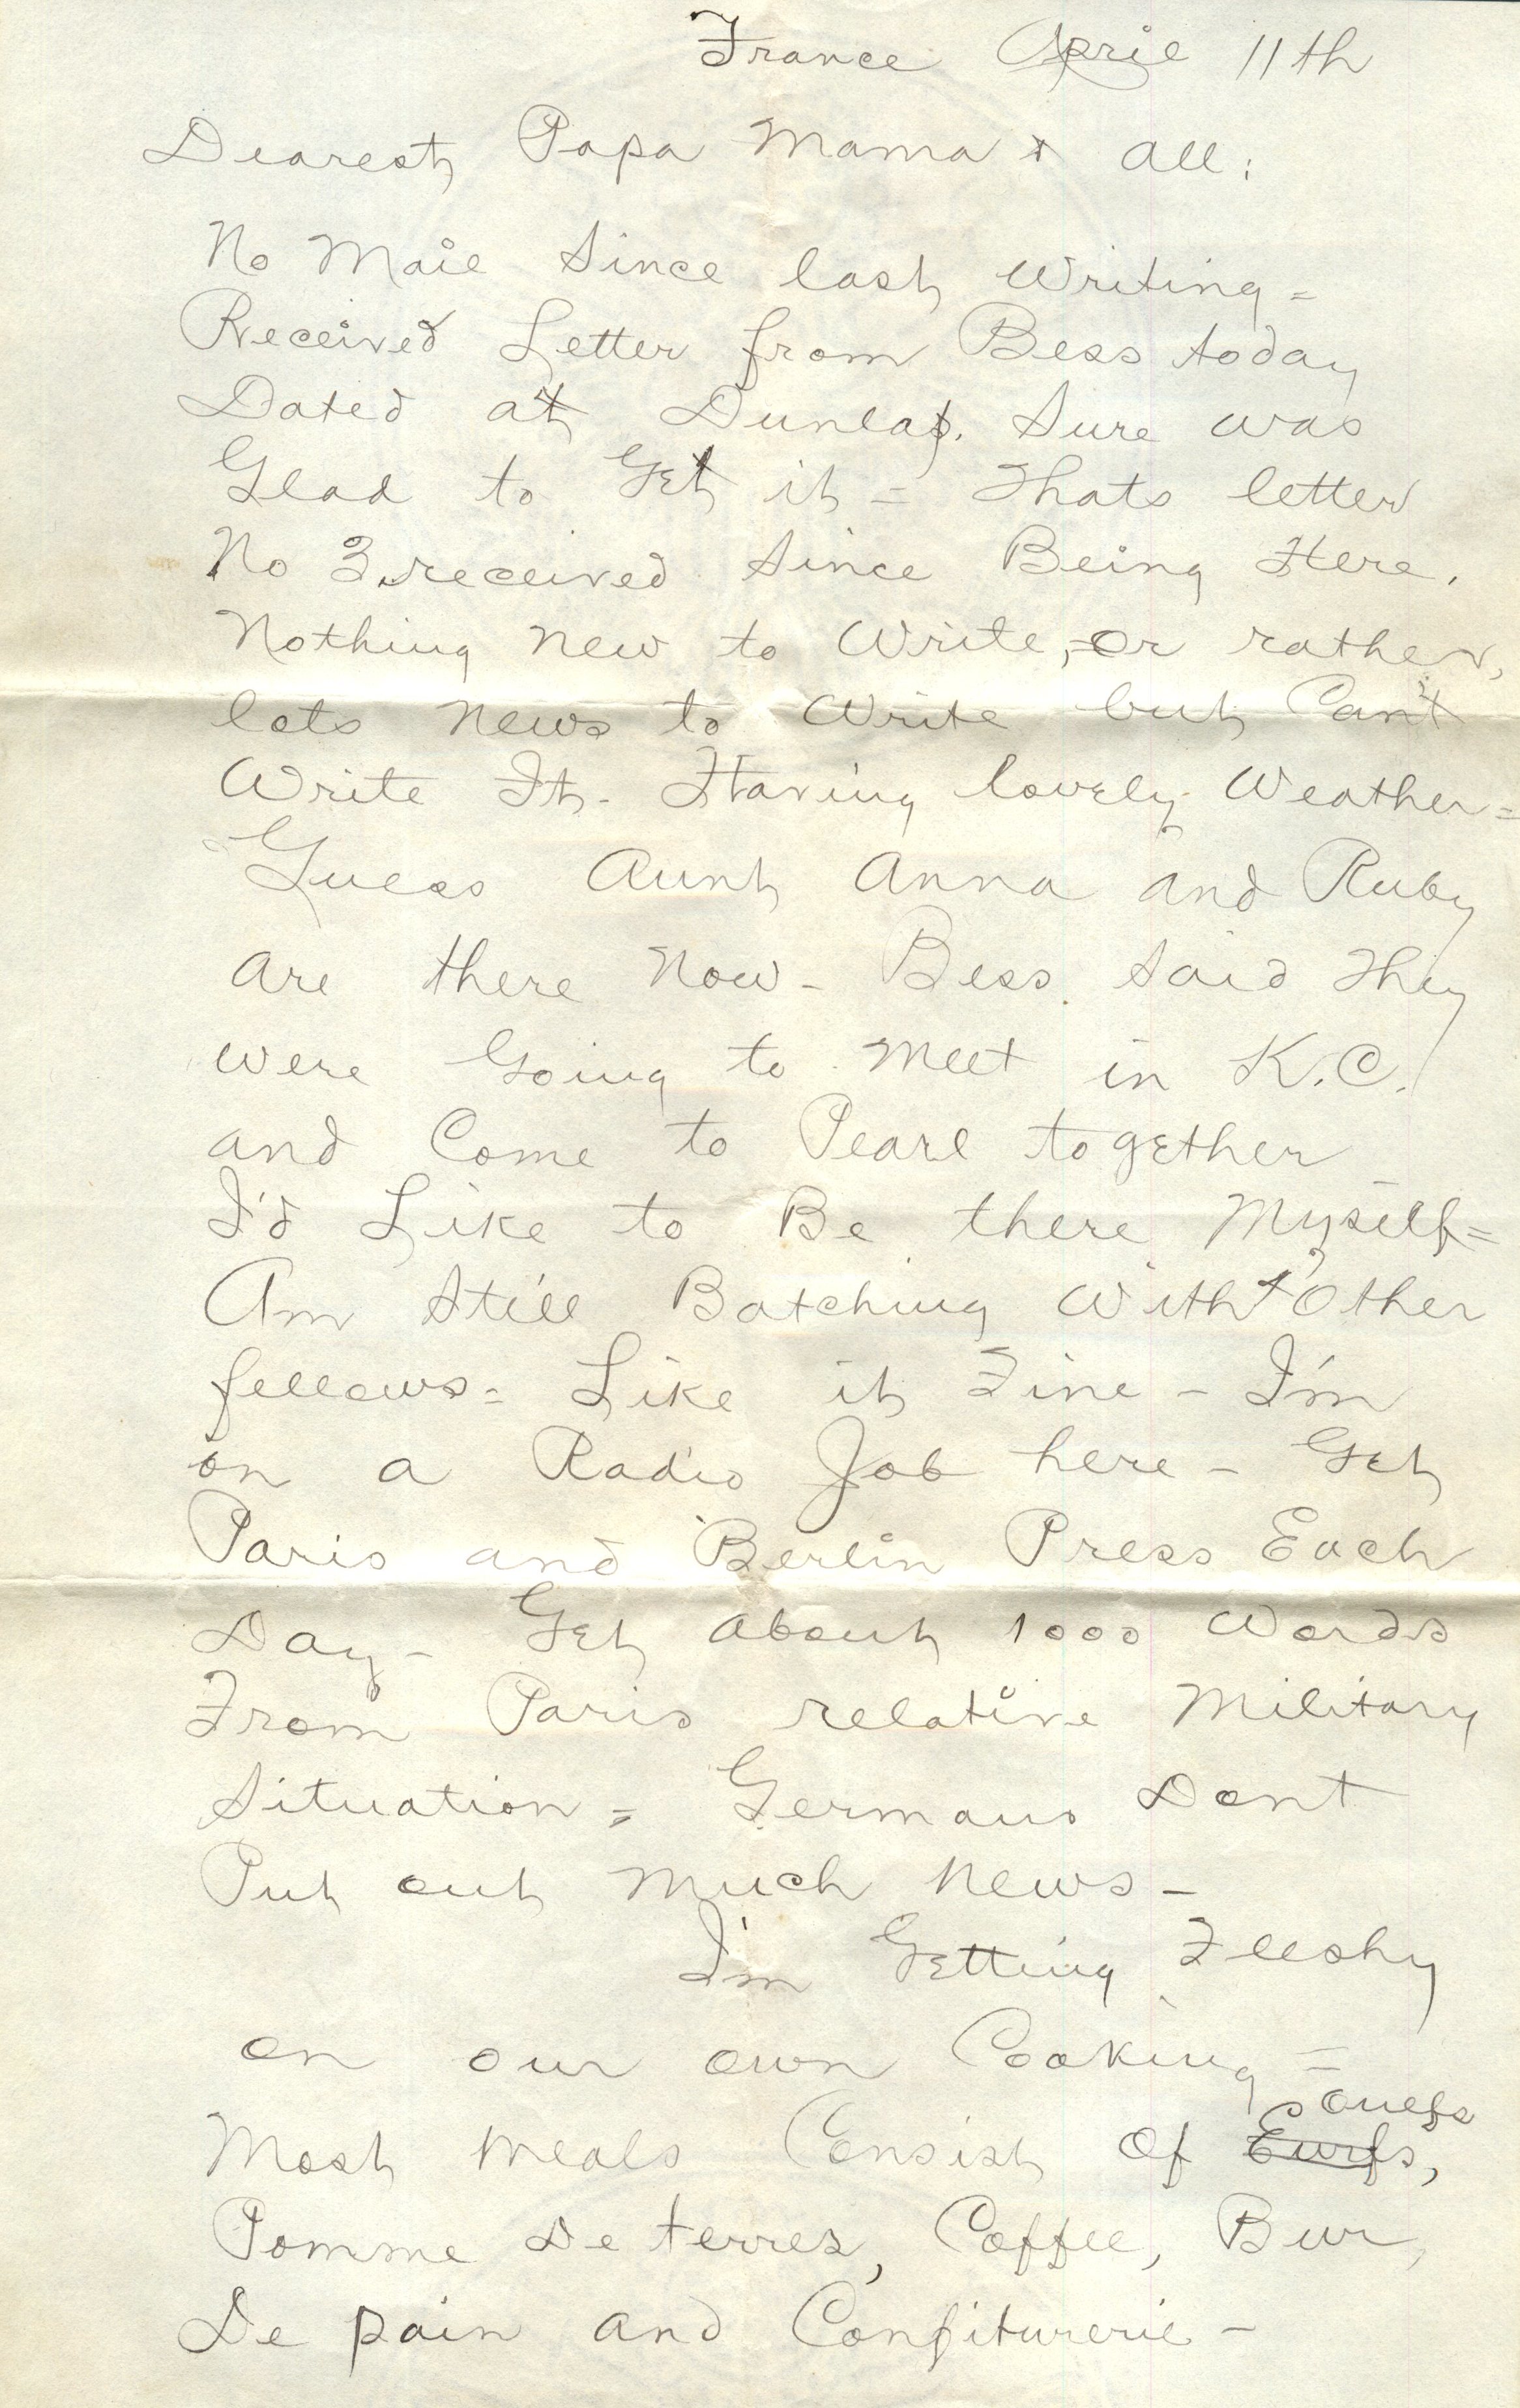 France April 11th
Dearest Papa Mama & all:
No Mail Since last Writing =
Received Letter from Bess today
Dated at Dunlap. Sure was
Glad to Get it = Thats letter
No 3 received Since Being Here.
Nothing New to Write, - or rather,
lots News to Write but Can't
Write It - Having lovely Weather =
Guess Aunt Anna and Ruby
are there Now - Bess said they
were Going to Meet in K.C.
and Come to Pearl together
I'd Like to Be there Myself =
Am Still Batching With 7 Other
fellows = Like it Fine - I'm
on a Radio Job here - Get
Paris and Berlin Press Each
Day - Get about 1000 Words
From Paris relative Military
Situation = Germans Dont
Put out Much News -
I'm Getting Fleshy
on our own Cooking =
Most Meals Consist of Eurfs, Ouefs
Pomme De terres, Coffee, Bur,
De pain and Confiturerie -